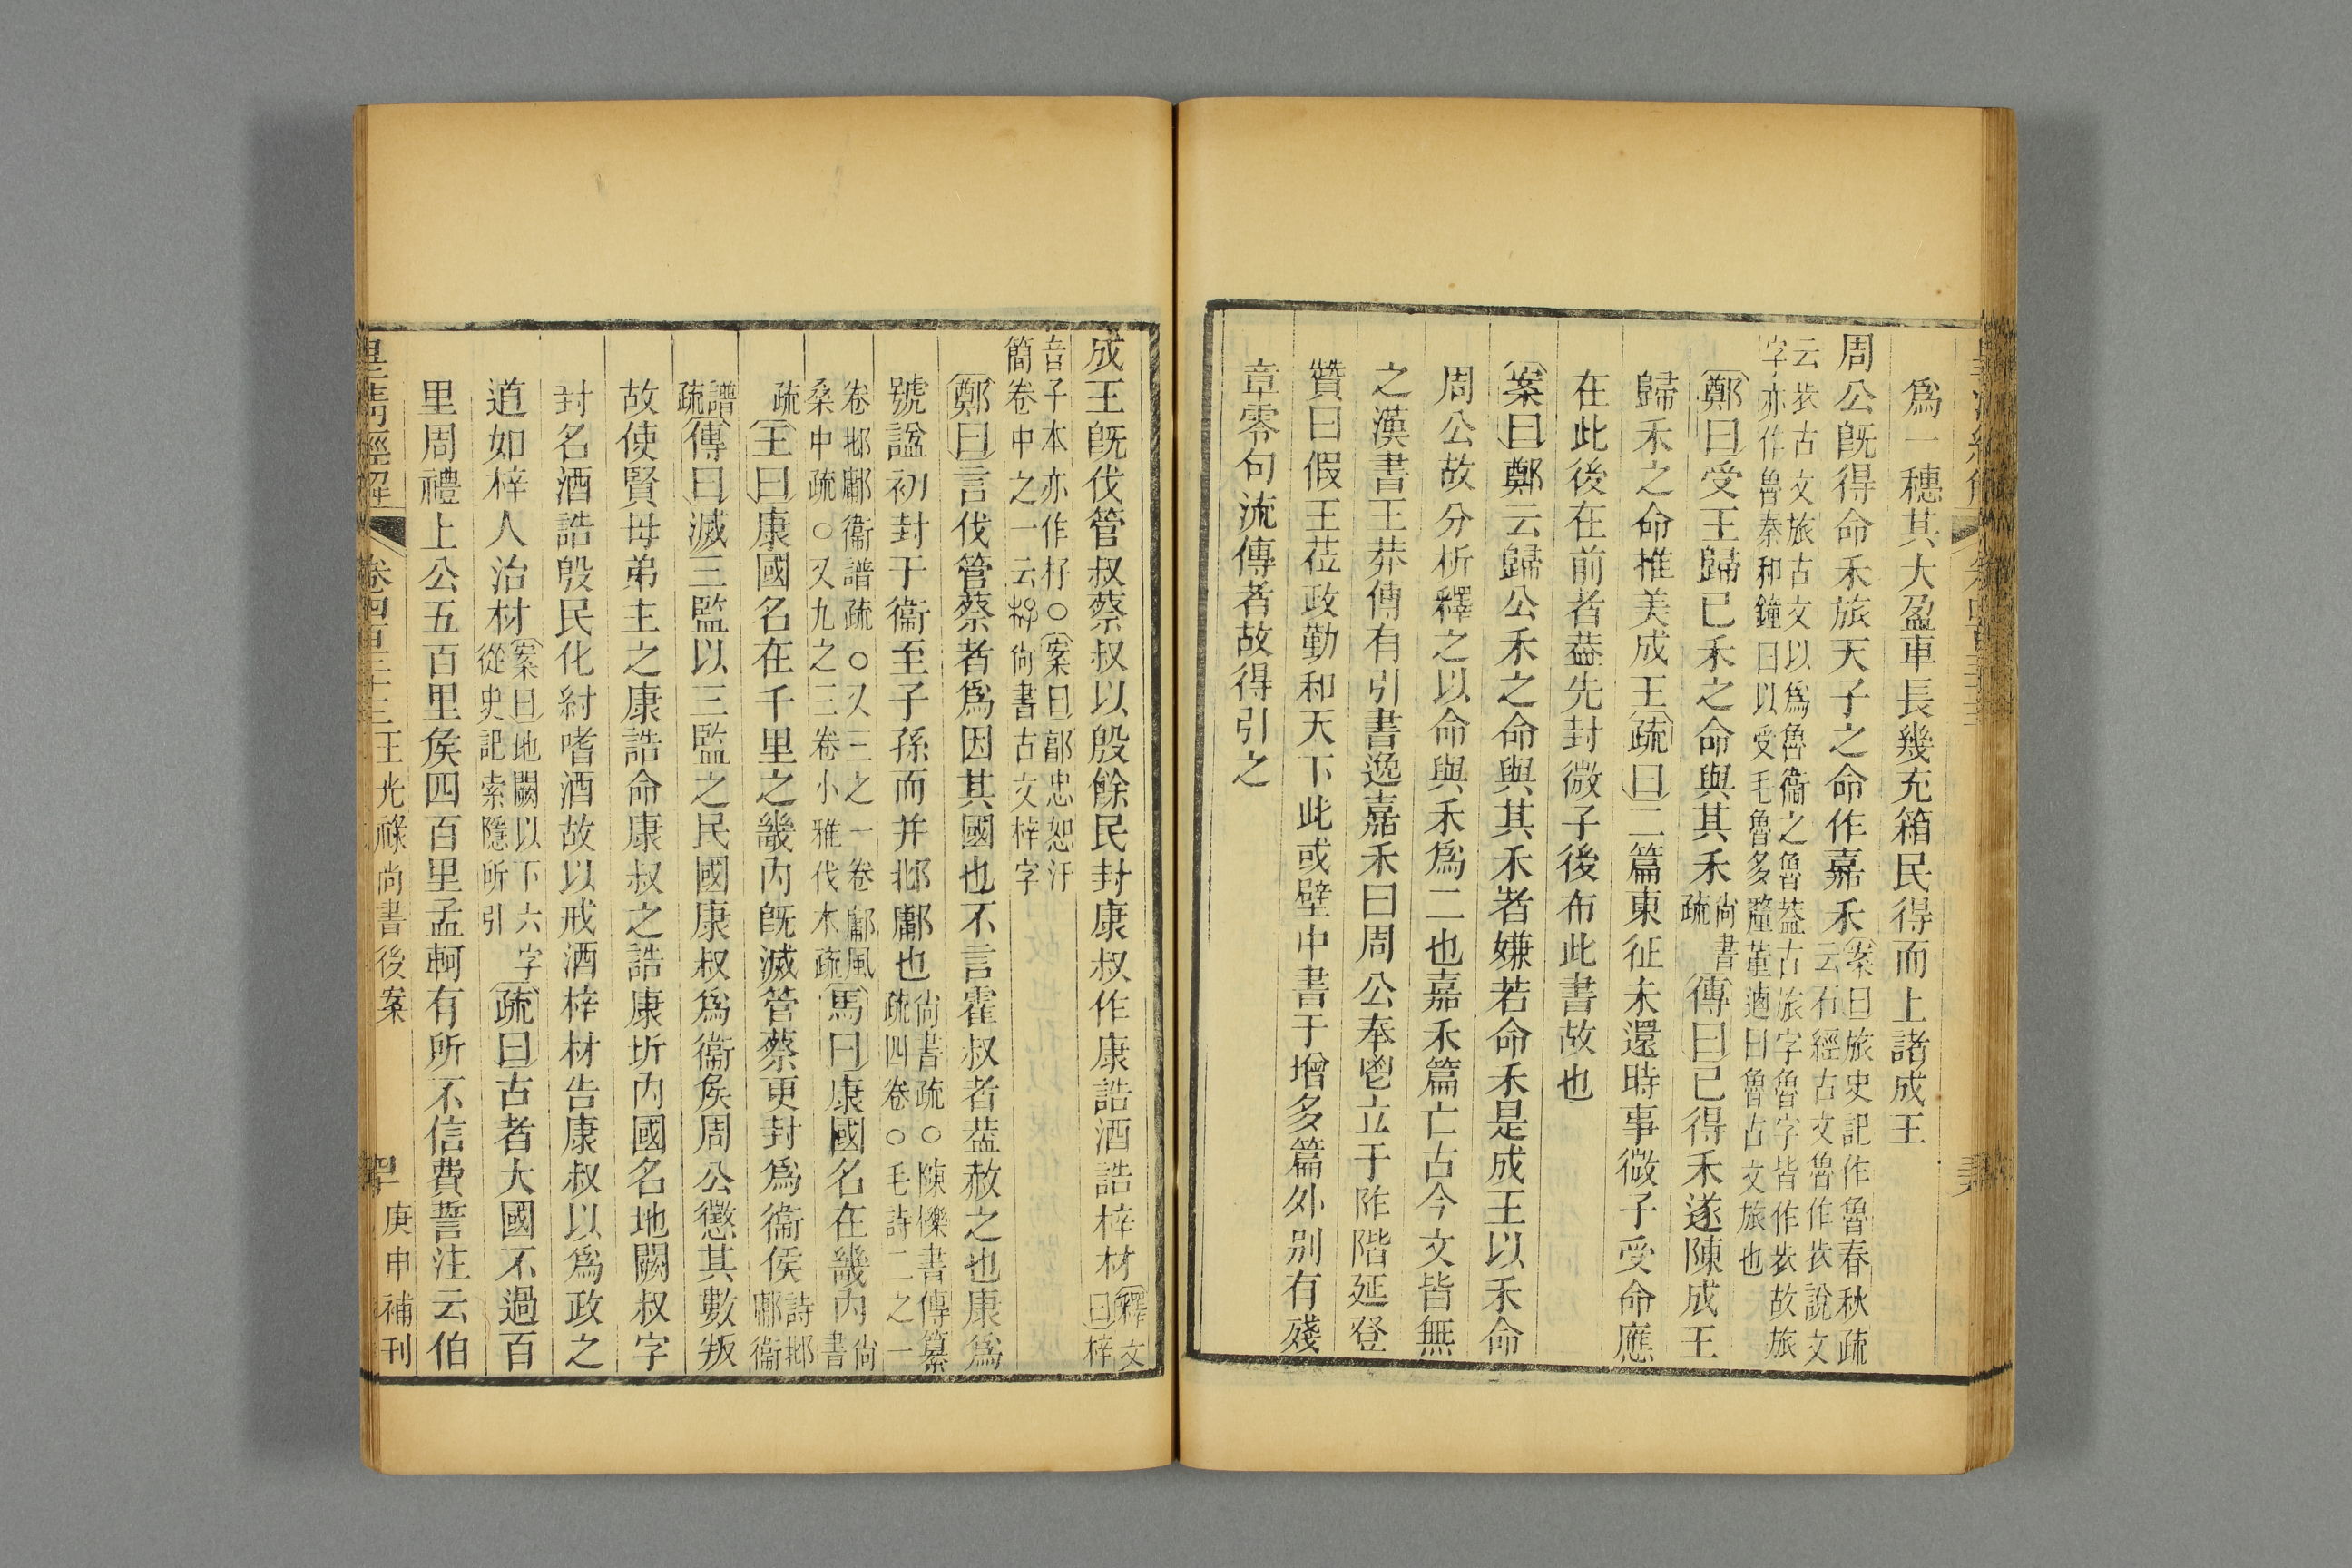 爲一穗其大盈車長幾充箱民得而上諸成王
周公既得命禾旅天子之命作嘉禾案曰旅史記作魯春秋疏云石經古文魯作𣥐說文
云𣥐古文旅古文以爲魯衞之魯葢古旅字魯字皆作𣥐故旅
字亦作魯秦和鐘曰以受毛魯多釐董逌曰魯古文旅也
鄭曰受王歸已禾之命與其禾尙書疏傳曰已得禾遂陳成王
歸禾之命推美成王疏曰二篇東征未還時事微子受命應
在此後在前者葢先封微子後布此書故也
案曰鄭云歸公禾之命與其禾者嫌若命禾是成王以禾命
周公故分析釋之以命與禾爲二也嘉禾篇亡古今文皆無
之漢書王莽傳有引書逸嘉禾曰周公奉鬯立于阼階延登
贊曰假王莅政勤和天下此或壁中書于增多篇外别有殘
章零句流傳者故得引之
成王既伐管叔蔡叔以殷餘民封康叔作康誥酒誥梓材釋文曰梓
音子本亦作杍○案曰郭忠恕汗
簡卷中之一云杍尙書古文梓字
鄭曰言伐管蔡者爲因其國也不言霍叔者葢赦之也康爲
號諡初封于衞至子孫而并邶鄘也尙書疏○陳櫟書傳纂疏四卷○毛詩二之一
卷邶鄘衞譜疏○又三之一卷鄘風
桑中疏○又九之三卷小雅伐木疏馬曰康國名在畿内尙書
疏王曰康國名在千里之畿内既滅管蔡更封爲衞侯詩邶鄘衞
譜疏傳曰滅三監以三監之民國康叔爲衞侯周公懲其數叛
故使賢母弟主之康誥命康叔之誥康圻内國名地闕叔字
封名酒誥殷民化紂嗜酒故以戒酒梓材告康叔以爲政之
道如梓人治材案曰地闕以下六字從史記索隱所引疏曰古者大國不過百
里周禮上公五百里侯四百里孟軻有所不信費誓注云伯
皇清經解 卷四百三十三 王光祿尙書後案 庚申補刊